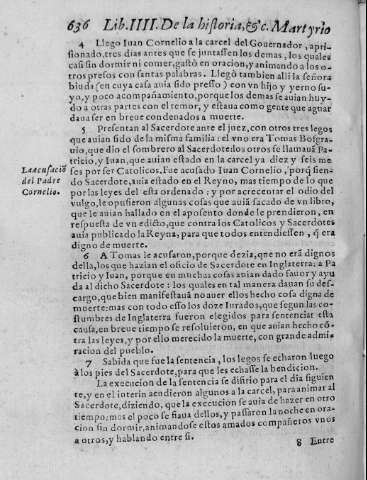 636 Lib. IIII. De la historia, &c. Martyrio
4 Llego Iuan Cornelio a la carcel del Gouernador, apri-
sionado, tres dias antes que se juntassen los demas, los quales
casi sin dormir ni comer, gastò en oracion, y animando a los o-
tros presos con santas palabras. Llegò tambien alli la señora
biuda (en cuya casa auia sido preso) con vn hijo y yerno su-
yo, y poco acompañamiento, porque los demas se auian huy-
do a otras partes con el temor, y estaua como gente que aguar
daua ser en breue condenados a muerte.
5 Presentan al Sacerdote ante el juez, con otros tres legos
que auian sido de la misma familia: el vno era Tomas Bosgra-
uio, que dio el sombrero al Sacerdote: los otros se llamauã Pa-
tricio, y Iuan, que auian estado en la carcel ya diez y seis me-
ses por ser Catolicos. Fue acusado Iuan Cornelio, porq̃ sien-
do Sacerdote, auia estado en el Reyno, mas tiempo de lo que
por las leyes del esta ordenado: y por acrecentar el odio del
vulgo, le opusieron algunas cosas que auiã sacado de vn libro,
que le auian hallado en el aposento donde le prendieron, en
respuesta de vn edicto, que contra los Catolicos y Sacerdotes
auia publicado la Reyna, para que todos entendiessen, q̃ era
digno de muerte.
La acusaciõ
del Padre
Cornelio.
6 A Tomas le acusaron, porque dezia, que no erã dignos
della, los que hazian el oficio de Sacerdote en Inglaterra: a Pa
tricio y Iuan, porque en muchas cosas auian dado fauor y ayu
da al dicho Sacerdote: los quales en tal manera dauan su des-
cargo, que bien manifestauã no auer ellos hecho cosa digna de
muerte: mas con todo esso los doze Iurados, que segun las co-
stumbres de Inglaterra fueron elegidos para sentenciar esta
causa, en breue tiempo se resoluieron, en que auian hecho cõ-
tra las leyes, y por ello merecido la muerte, con grande admi-
racion del pueblo.
7 Sabida que fue la sentencia, los legos se echaron luego
a los pies del Sacerdote, para que les echasse la bendicion.
La execucion de la sentencia se difirio para el dia siguien
te, y en el interin aendieron algunos a la carcel, para animar al
Sacerdote, diziendo, que la execucion se auia de hazer en otro
tiempo: mas el poco se fiaua dellos, y passaron la noche en ora-
cion sin dormir, animandose estos amados compañeros vnos
a otros, y hablando entre si.
8 Entre